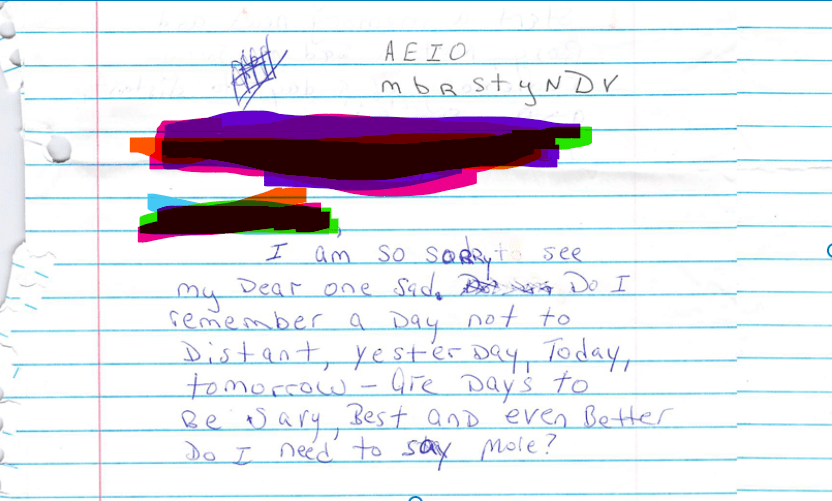 A E I O
m b R S t y N D V
I am so sorry to see
my Dear one sad. Do I
remember a Day not to
Distant, yesterDay, Today,
tomorrow - are Days to
Be Sary, Best anD even Better
Do I need to say More?